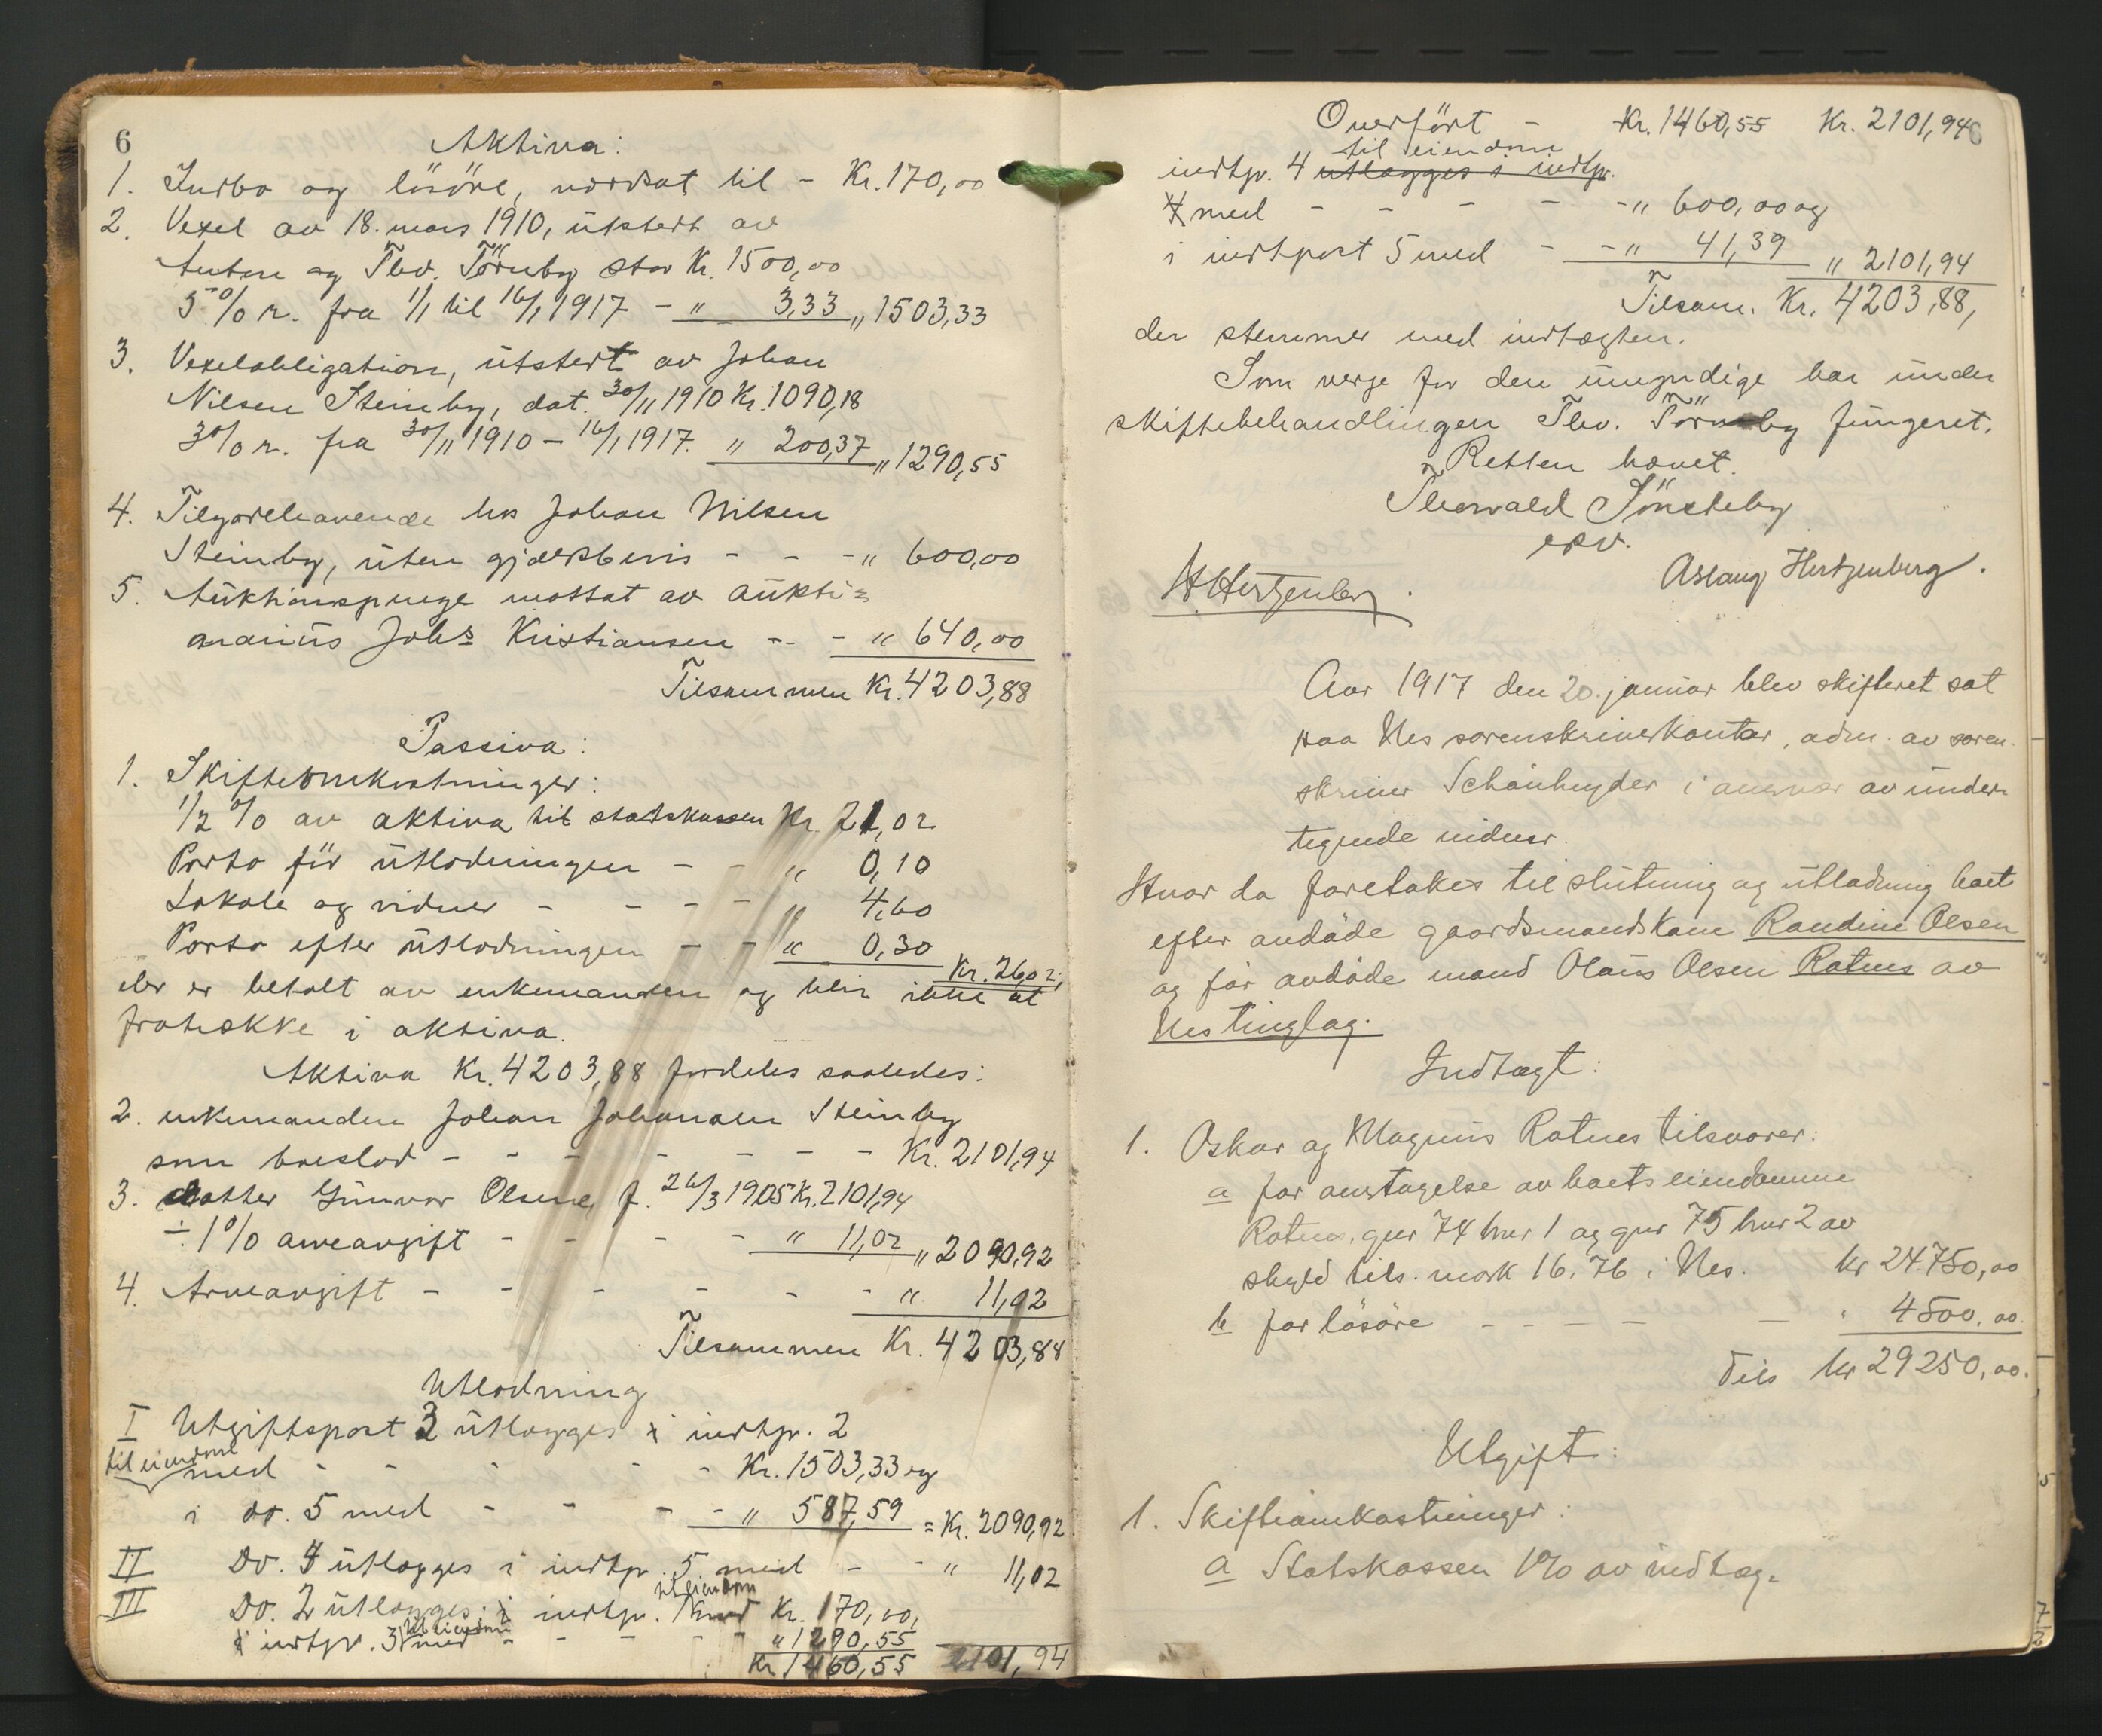 6
Aktiva:
1. Indbo og lösöre, værdsat til - Kr. 170,00
2. Vexel av 18. mars 1910, utstedt av
Anton og Thv. Törnby stor Kr. 1500,00
5 % r. fra 1/1 til 16/1 1917 - " 3,33 " 1503,33
3. Vexelobligation, utstedt av Johan
Nilsen Steinby, dat. 30/11 1910 Kr. 1090,18
3 % r. fra 30/11 1910 - 16/1 1917. " 200,37 " 1290,55
4. Tilgodehavende hos Johan Nilsen
Steinby, uten gjældsbevis - - - " 600,00
5. Auktionspenge mottat av aukti=
onarius Johs Kristiansen - - - " 640,00
Tilsammen Kr. 4203,88
Passiva:
1. Skifteomkostninger:
1/2 % av aktiva til statskassen Kr. 21,02
Porto för utlodningen - - " 0,10
Lokale og vidner - - - - " 4,60
Porto efter utlodningen - - " 0,30
Kr. 26,02,
der er betalt av enkemanden og blir ikke at
fratrække i aktiva.
Aktiva Kr. 4203,88 fordeles saaledes:
2. enkemanden Johan Johansen Steinby
som boeslod - - - - - - - Kr. 2101,94
3. datter Gunvor Olsen, f. 26/3 1905 Kr. 2101,94
÷ 1 % arveavgift - - - - " 11,02 " 2090,92
4. Arveavgift - - - - - - " 11,02
Tilsammen Kr. 4203,88
Utlodning
I Utgiftspost 3 utlægges i indtp. 2
til eiendom
med - - - - - Kr. 1503,33 og
i do. 5 med - - - - " 587,59 = Kr. 2090,92
II Do. 4 utlægges i indtp. 5 med - - " 11,02
til eiendom
III Do. 2 utlægges i indtp. 1 med Kr. 170,00,
til eiendom
i indtp. 3 med - - - - - " 1290,55
Kr. 1460,55 2101,94
Overfört - Kr. 1460,55 Kr. 2101,94
6
til eiendom
indtp. 4 utlægges i indtp.
4 med - - - - - " 600,00 og
i indtpost 5 med - - " 41,39 " 2101,94
Tilsam. Kr. 4203,88,
der stemmer med indtægten.
Som verge for den umyndige har under
skiftebehandlingen Thv. Törnby fungeret.
Retten hævet.
Thorvald Sönsteby
epv.
Aslaug Hertzenberg.
H. Hertzenberg.
Aar 1917 den 20. januar blev skifteret sat
paa Nes sorenskriverkontor, adm. av soren-
skriver Schönheyder i nærvær av under-
tegnede vidner.
Hvor da foretokes til slutning og utlodning boet
efter avdöde gaardmandskone Randine Olsen
og för avdöde mand Olaus Olsen Rotnes av
Nes tinglag.
Indtægt:
1. Oskar og Magnus Rotnes tilsvarer:
a for overtagelse av boets eiendomme
Rotnes, gnr 74 bnr 1 og gnr 75 bnr 2 av
skyld tils. mark 16,76 i Nes. kr 24750,00
b for lösöre - - - - - " 4500,00
Tils kr 29250,00.
Utgift:
1. Skifteomkostninger:
a Statskassen 1 % av indtæg-